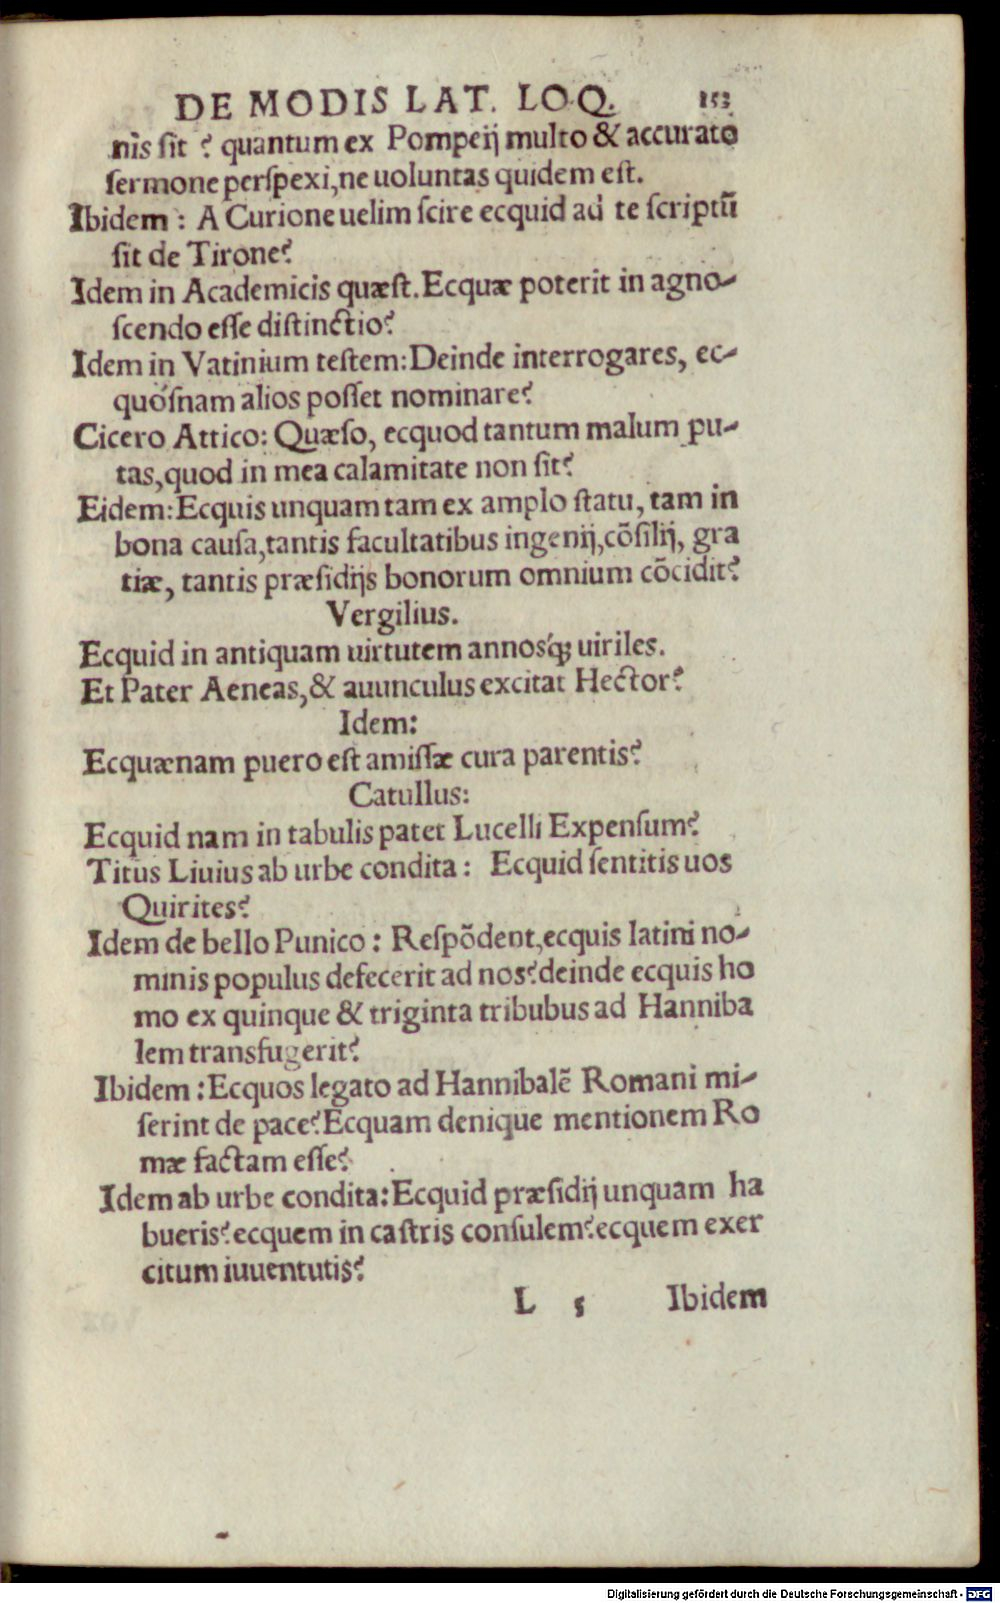 DE MODIS LAT. LOQ. 153
nis sit ? quantum ex Pompeij multo & accurato
ſermone perſpexi, ne uoluntas quidem eſt.
Ibidem : A Curione uelim ſcire ecquid ad te ſcriptū
ſit de Tirone?
Idem in Academicis quæſt. Ecquæ poterit in agno-
ſcendo eſſe diſtinctio?
Idem in Vatinium teſtem: Deinde interrogares, ec-
quóſnam alios poſſet nominare?
Cicero Attico: Quæſo, ecquod tantum malum pu-
tas, quod in mea calamitate non ſit?
Eidem: Ecquis unquam tam ex amplo ſtatu, tam in
bona cauſa, tantis facultatibus ingenij, cōſilij, gra
tiæ, tantis præſidijs bonorum omnium cōcidit?
Vergilius.
Ecquid in antiquam uirtutem annosq́; uiriles.
Et Pater Aeneas, & auunculus excitat Hector?
Idem:
Ecquænam puero eſt amiſſæ cura parentis?
Catullus:
Ecquid nam in tabulis patet Lucelli Expenſum?
Titus Liuius ab urbe condita : Ecquid ſentitis uos
Quirites?
Idem de bello Punico : Reſpōdent, ecquis latini no-
minis populus defecerit ad nos? deinde ecquis ho
mo ex quinque & triginta tribubus ad Hanniba
lem transfugerit?
Ibidem : Ecquos legato ad Hannibalē Romani mi-
ſerint de pace? Ecquam denique mentionem Ro
mæ factam eſſe?
Idem ab urbe condita: Ecquid præſidij unquam ha
bueris? ecquem in caſtris conſulem? ecquem exer
citum iuuentutis?
L 5 Ibidem
Digitalisierung gefördert durch die Deutsche Forschungsgemeinschaft - DFG